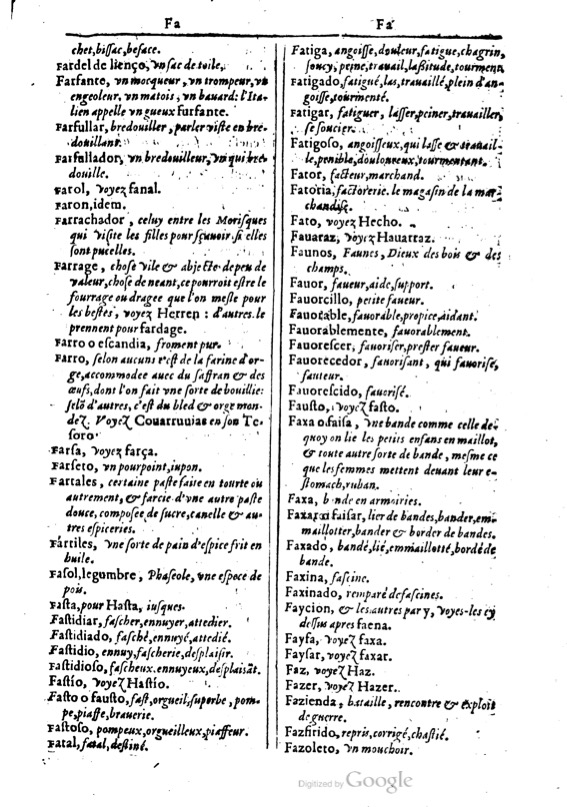 Fa
Fa
chet,bissac,besace.
Fardel de lienço, vn sac de toile,
Farfante, vn mocqueur, vn trompeur, vn
engeoleur, vn matois, vn bauard: l'Ita-
lien appelle vn gueux furfante.
Farfullar, bredouiller, parler viste en bre-
douillant.
Farfullador, vn bredouilleur, vn qui bre-
douille.
Farol, voyez fanal.
Faron, idem.
Farrachador, celuy entre les Morisques
qui visite les filles pour sçauoir si elles
sont pucelles.
Farrage, chose vile & abjecte de peu de
valeur, chose de neant, ce pourroit estre le
fourrage ou dragee que l'on mesle pour
les bestes, voyez Herren : d'autres le
prennent pour fardage.
Farro o escandia, froment pur.
Farro, selon aucuns c'est de la farine d'or-
ge, accommodee auec du saffran & des
œufs, dont l'on fait vne sorte de bouillie:
selõ d'autres, c'est du bled & orge mon-
dez. Voyez Couarruuias en son Te-
soro
Farsa, voyez farça.
Farseto, vn pourpoint, iupon.
Fartales, certaine paste faite en tourte ou
autrement, & farcie d'vne autre paste
douce, composee de sucre, canelle & au-
tres espiceries.
Fartiles, vne sorte de pain d'espice frit en
huile.
Fasol, legumbre, Phaseole, vne espece de
pois.
Fasta, pour Hasta, iusques.
Fastidiar, fascher, ennuyer, attedier.
Fastidiado, fasché, ennuyé, attedié.
Fastidio, ennuy, fascherie, desplaisir.
Fastidioso, fascheux, ennuyeux, desplaisāt.
Fastio, voyez Hastio.
Fasto o fausto, fast, orgueil, superbe, pom-
pe, piaffe, brauerie.
Fastoso, pompeux, orgueilleux, piaffeur.
Fatal, fatal, destiné.
Fatiga, angoisse, douleur, fatigue, chagrin,
soucy, peine, trauail, lassitude, tourment.
Fatigado, fatigué, las, trauaillé, plein d'an-
goisse, tourmenté.
Fatigar, fatiguer, lasser, peiner, trauailler,
se soucier.
Fatigoso, angoisseux, qui lasse & trauail-
le, penible, douloureux, tourmentant.
Fator, facteur, marchand.
Fatoria, factorerie, le magasin de la mar-
chandise.
Fato, voyez Hecho.
Fauaraz, voyez Hauarraz.
Faunos, Faunes, Dieux des bois & des
champs.
Fauor, faueur, aide, support.
Fauorcillo, petite faueur.
Fauorable, fauorable, propice, aidant.
Fauorablemente, fauorablement.
Fauorescer, fauoriser, prester faueur.
Fauorecedor, fauorisant, qui fauorise,
fauteur.
Fauorescido, fauorisé.
Fausto, voyez fasto.
Faxa o faisa, vne bande comme celle de-
quoy on lie les petits enfans en maillot,
& toute autre sorte de bande, mesme ce
que les femmes mettent deuant leur e-
stomach, ruban.
Faxa, bande en armoiries.
Faxar o faisar, lier de bandes, bander, em-
maillotter, bander & border de bandes.
Faxado, bandé, lié, emmaillotté, bordé de
bande.
Faxina, fascine.
Faxinado, remparé de fascines.
Faycion, & les autres par y, voyes-les cy
dessus apres faena.
Faysa, voyez faxa.
Faysar, voyez faxar.
Faz, voyez Haz.
Fazer, voyez Hazer.
Fazienda, bataille, rencontre & exploit
de guerre.
Fazfirido, repris, corrigé, chastié.
Fazoleto, vn mouchoir.
Digitized by Google